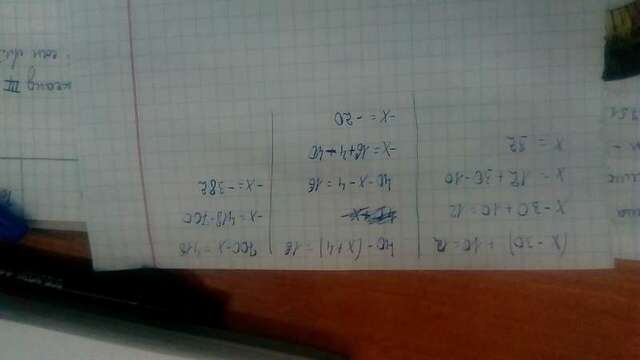 (x-30)+10=12
x-30+10=12
x=12+30-10
x=32
40-(x+4)=16
40-x-4=16
-x=16+4-40
-x=-20
800-x=418
-x=418-800
-x=-382
III